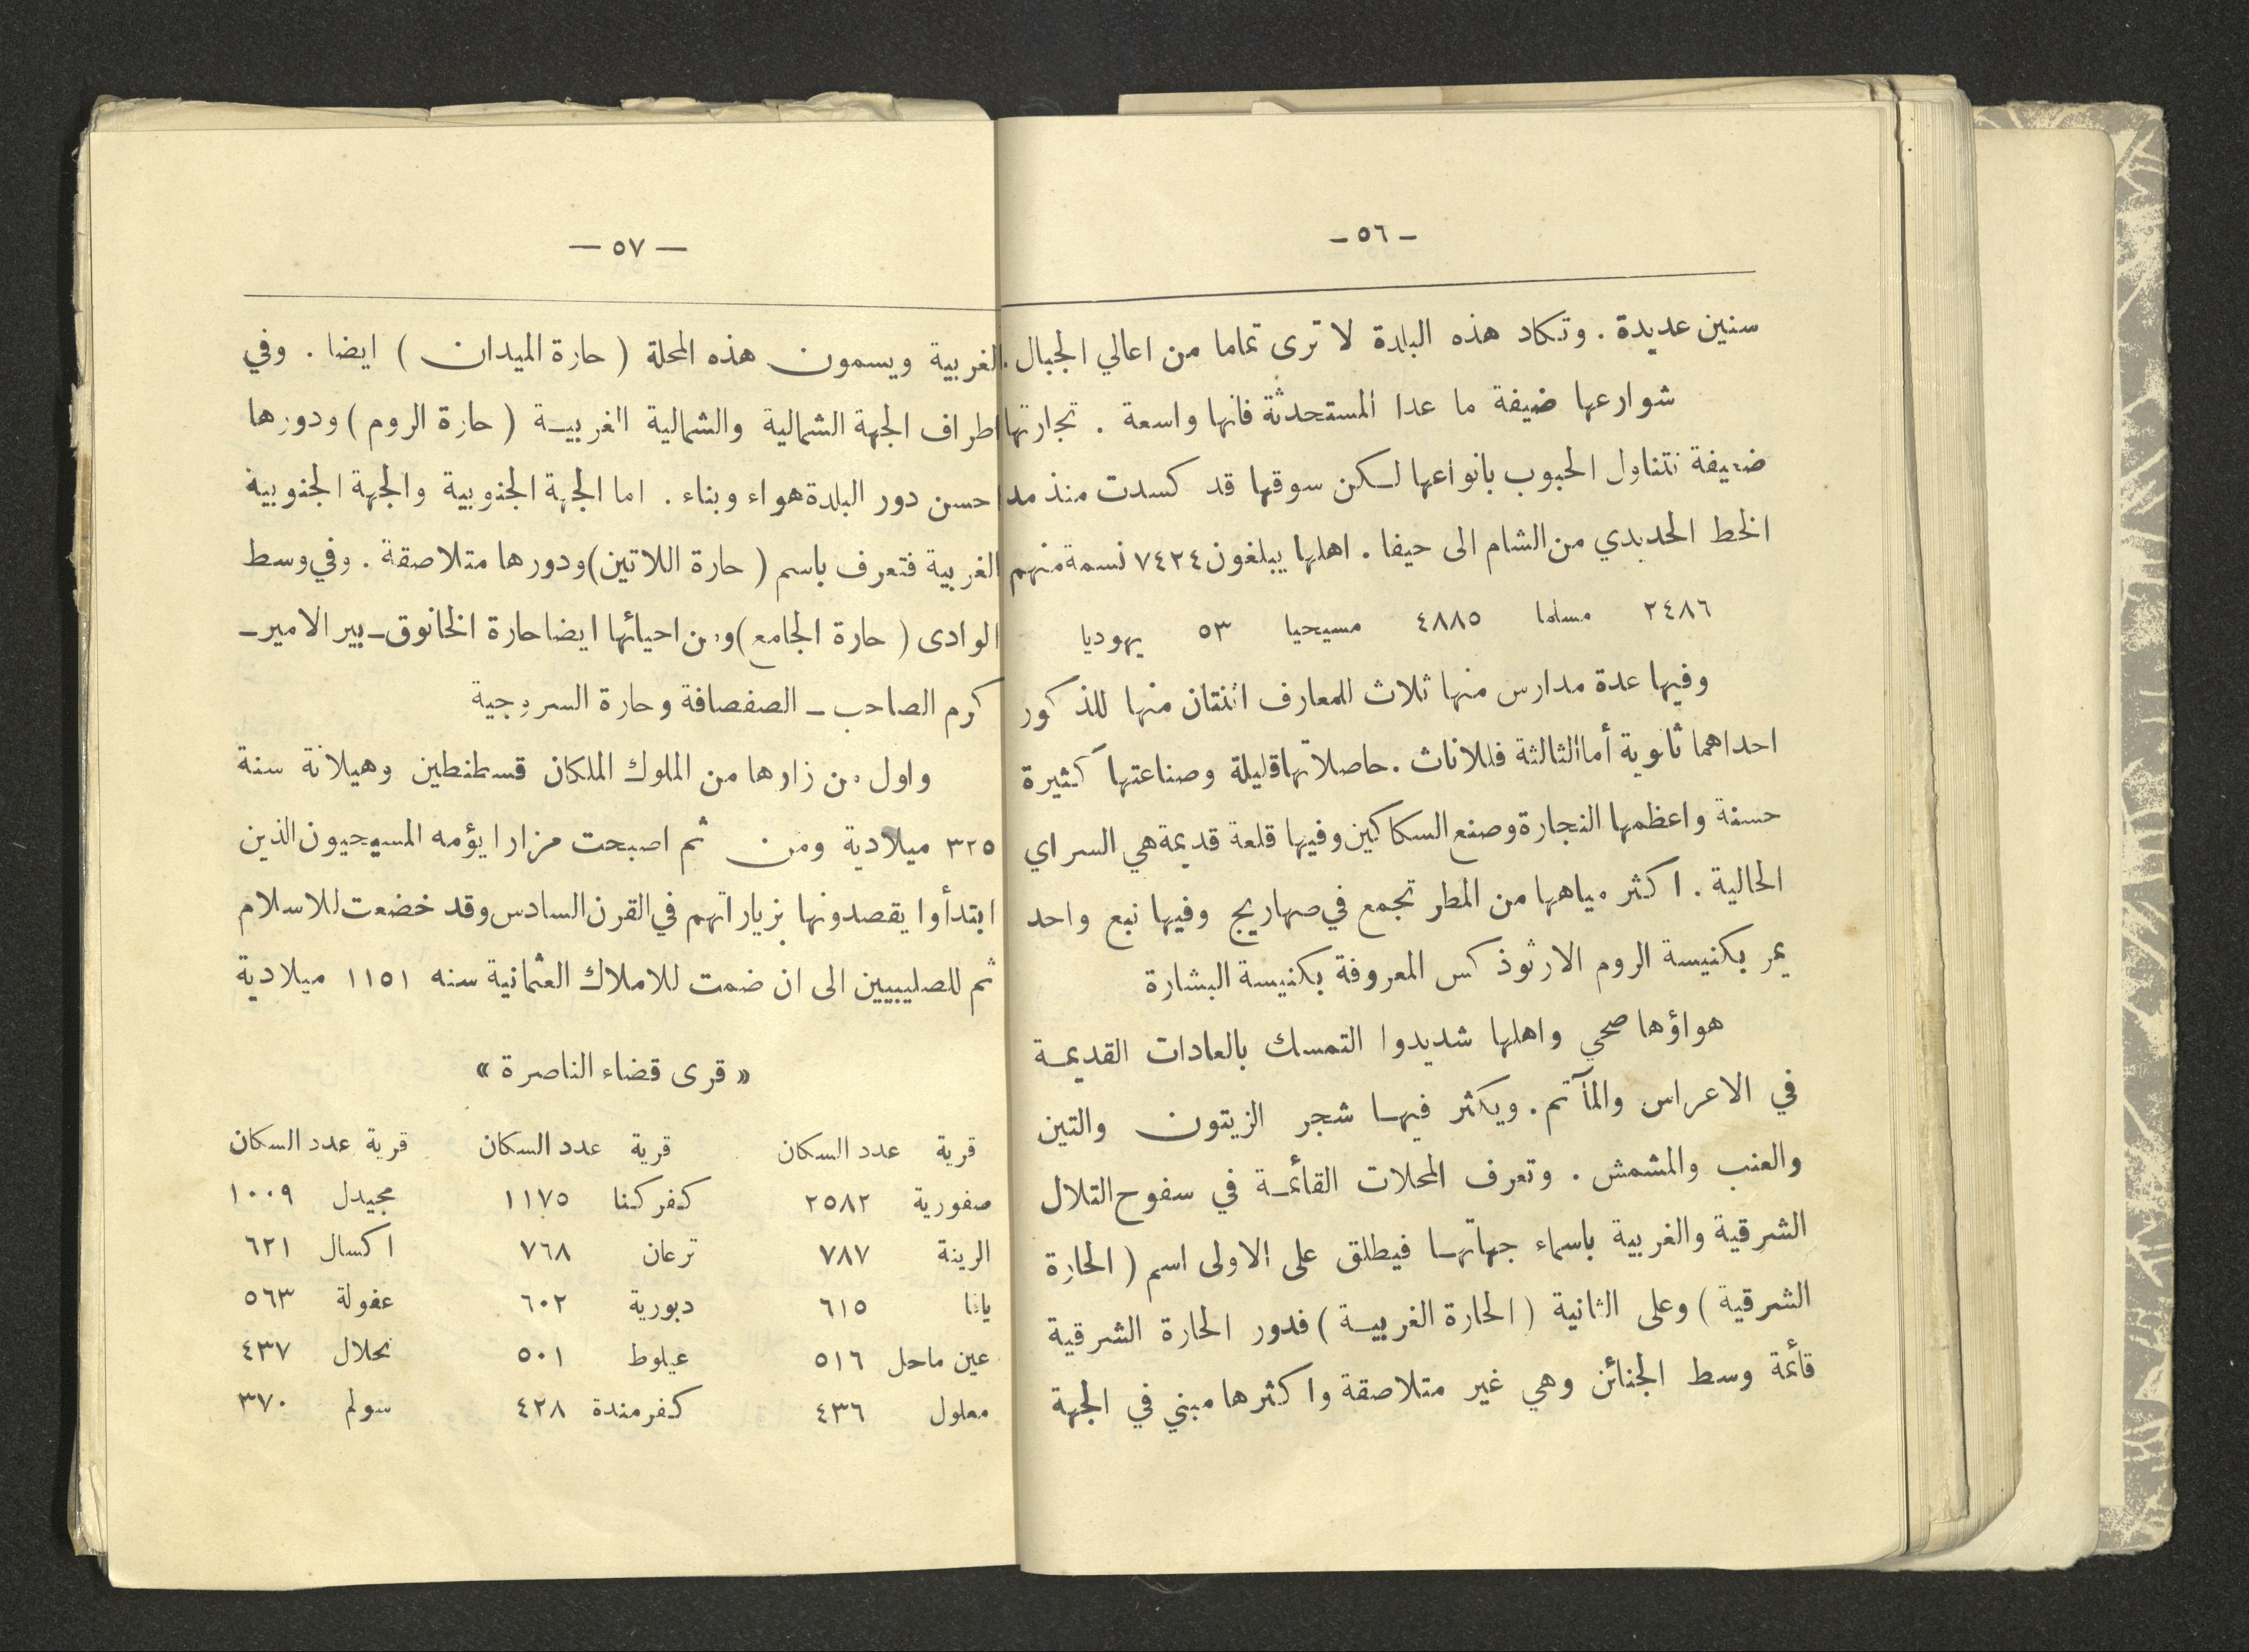 - ٥٦ -
سنين عديدة . وتكاد هذه البلدة لا ترى تماما من اعالي الجبال .
شوارعها ضيقة ما عدا المستحدثة فانها واسعة . تجارتها
ضعيفة تتناول الحبوب بانواعها لكن سوقها قد كسدت منذ مد
الخط الحديدي من الشام الى حيفا . اهلها يبلغون ٧٤٢٤ نسمة منهم
٢٤٨٦ مسلما ٤٨٨٥ مسيحيا ٥٣ يهوديا
وفيها عدة مدارس منها ثلاث للمعارف اثنتان منها للذكور
احداهما ثانوية أما الثالثة فللاناث . حاصلاتها قليلة وصناعتها كثيرة
حسنة واعظمها النجارة وصنع السكاكين وفيها قلعة قديمة هي السراي
الحالية . اكثر مياهها من المطر تجمع في صهاريج وفيها نبع واحد
يمر بكنيسة الروم الارثوذكس المعروفة بكنيسة البشارة
هواؤها صحي واهلها شديدوا التمسك بالعادات القديمة
في الاعراس والمآتم . ويكثر فيها شجر الزيتون والتين
والعنب والمشمش . وتعرف المحلات القائمة في سفوح التلال
الشرقية والغربية باسماء جهاتها فيطلق على الاولى اسم ( الحارة
الشرقية ) وعلى الثانية ( الحارة الغربية ) فدور الحارة الشرقية
قائمة وسط الجنائن وهي غير متلاصقة واكثرها مبني في الجهة
— ٥٧ —
الغربية ويسمون هذه المحلة ( حارة الميدان ) ايضا . وفي
اطراف الجهة الشمالية والشمالية الغربية ( حارة الروم ) ودورها
احسن دور البلدة هواء وبناء . اما الجهة الجنوبية والجهة الجنوبية
الغربية فتعرف باسم ( حارة اللاتين ) ودورها متلاصقة . وفي وسط
الوادى ( حارة الجامع ) ومن احيائها ايضا حارة الخانوق - بير الامير -
كرم الصاحب - الصفصافة وحارة السروجية
واول من زارها من الملوك الملكان قسطنطين وهيلانة سنة
٣٢٥ ميلادية ومن ثم اصبحت مزارا يؤمه المسيحيون الذين
ابتدأوا يقصدونها بزياراتهم في القرن السادس وقد خضعت للاسلام
ثم للصليبيين الى ان ضمت للاملاك العثمانية سنه ١١٥١ ميلادية
« قرى قضاء الناصرة »
قرية عدد السكان قرية عدد السكان قرية عدد السكان
صفورية ٢٥٨٢ كفركنا ١١٧٥ مجيدل ١٠٠٩
الرينة ٧٨٧ ترعان ٧٦٨ اكسال ٦٢١
يافا ٦١٥ دبورية ٦٠٢ عفولة ٥٦٣
عين ماحل ٥١٦ عيلوط ٥٠١ نحلال ٤٣٧
معلول ٤٣٦ كفرمندة ٤٢٨ سولم ٣٧٠